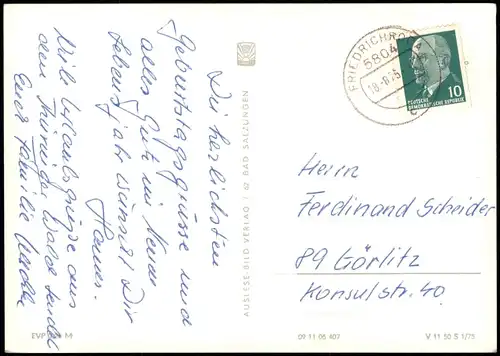 Die herzlichsten
Geburtstagsgrüsse und
alles Gute im neuen
Lebensjahr wünscht Dir
Hannes.
Viele Urlaubsgrüsse aus
dem Thüringer Walde sendet
Eure Familie
AUSLESE-BILD-VERLAG / 62 BAD SALZUNGEN
FRIEDRICHRODA
5804
18.-8.75
c
DEUTSCHE
DEMOKRATISCHE REPUBLIK
10
Herrn
Ferdinand Scheider
89 Görlitz
Konsulstr. 40
EVP M
09 11 06 407
V 11 50 S 1/75